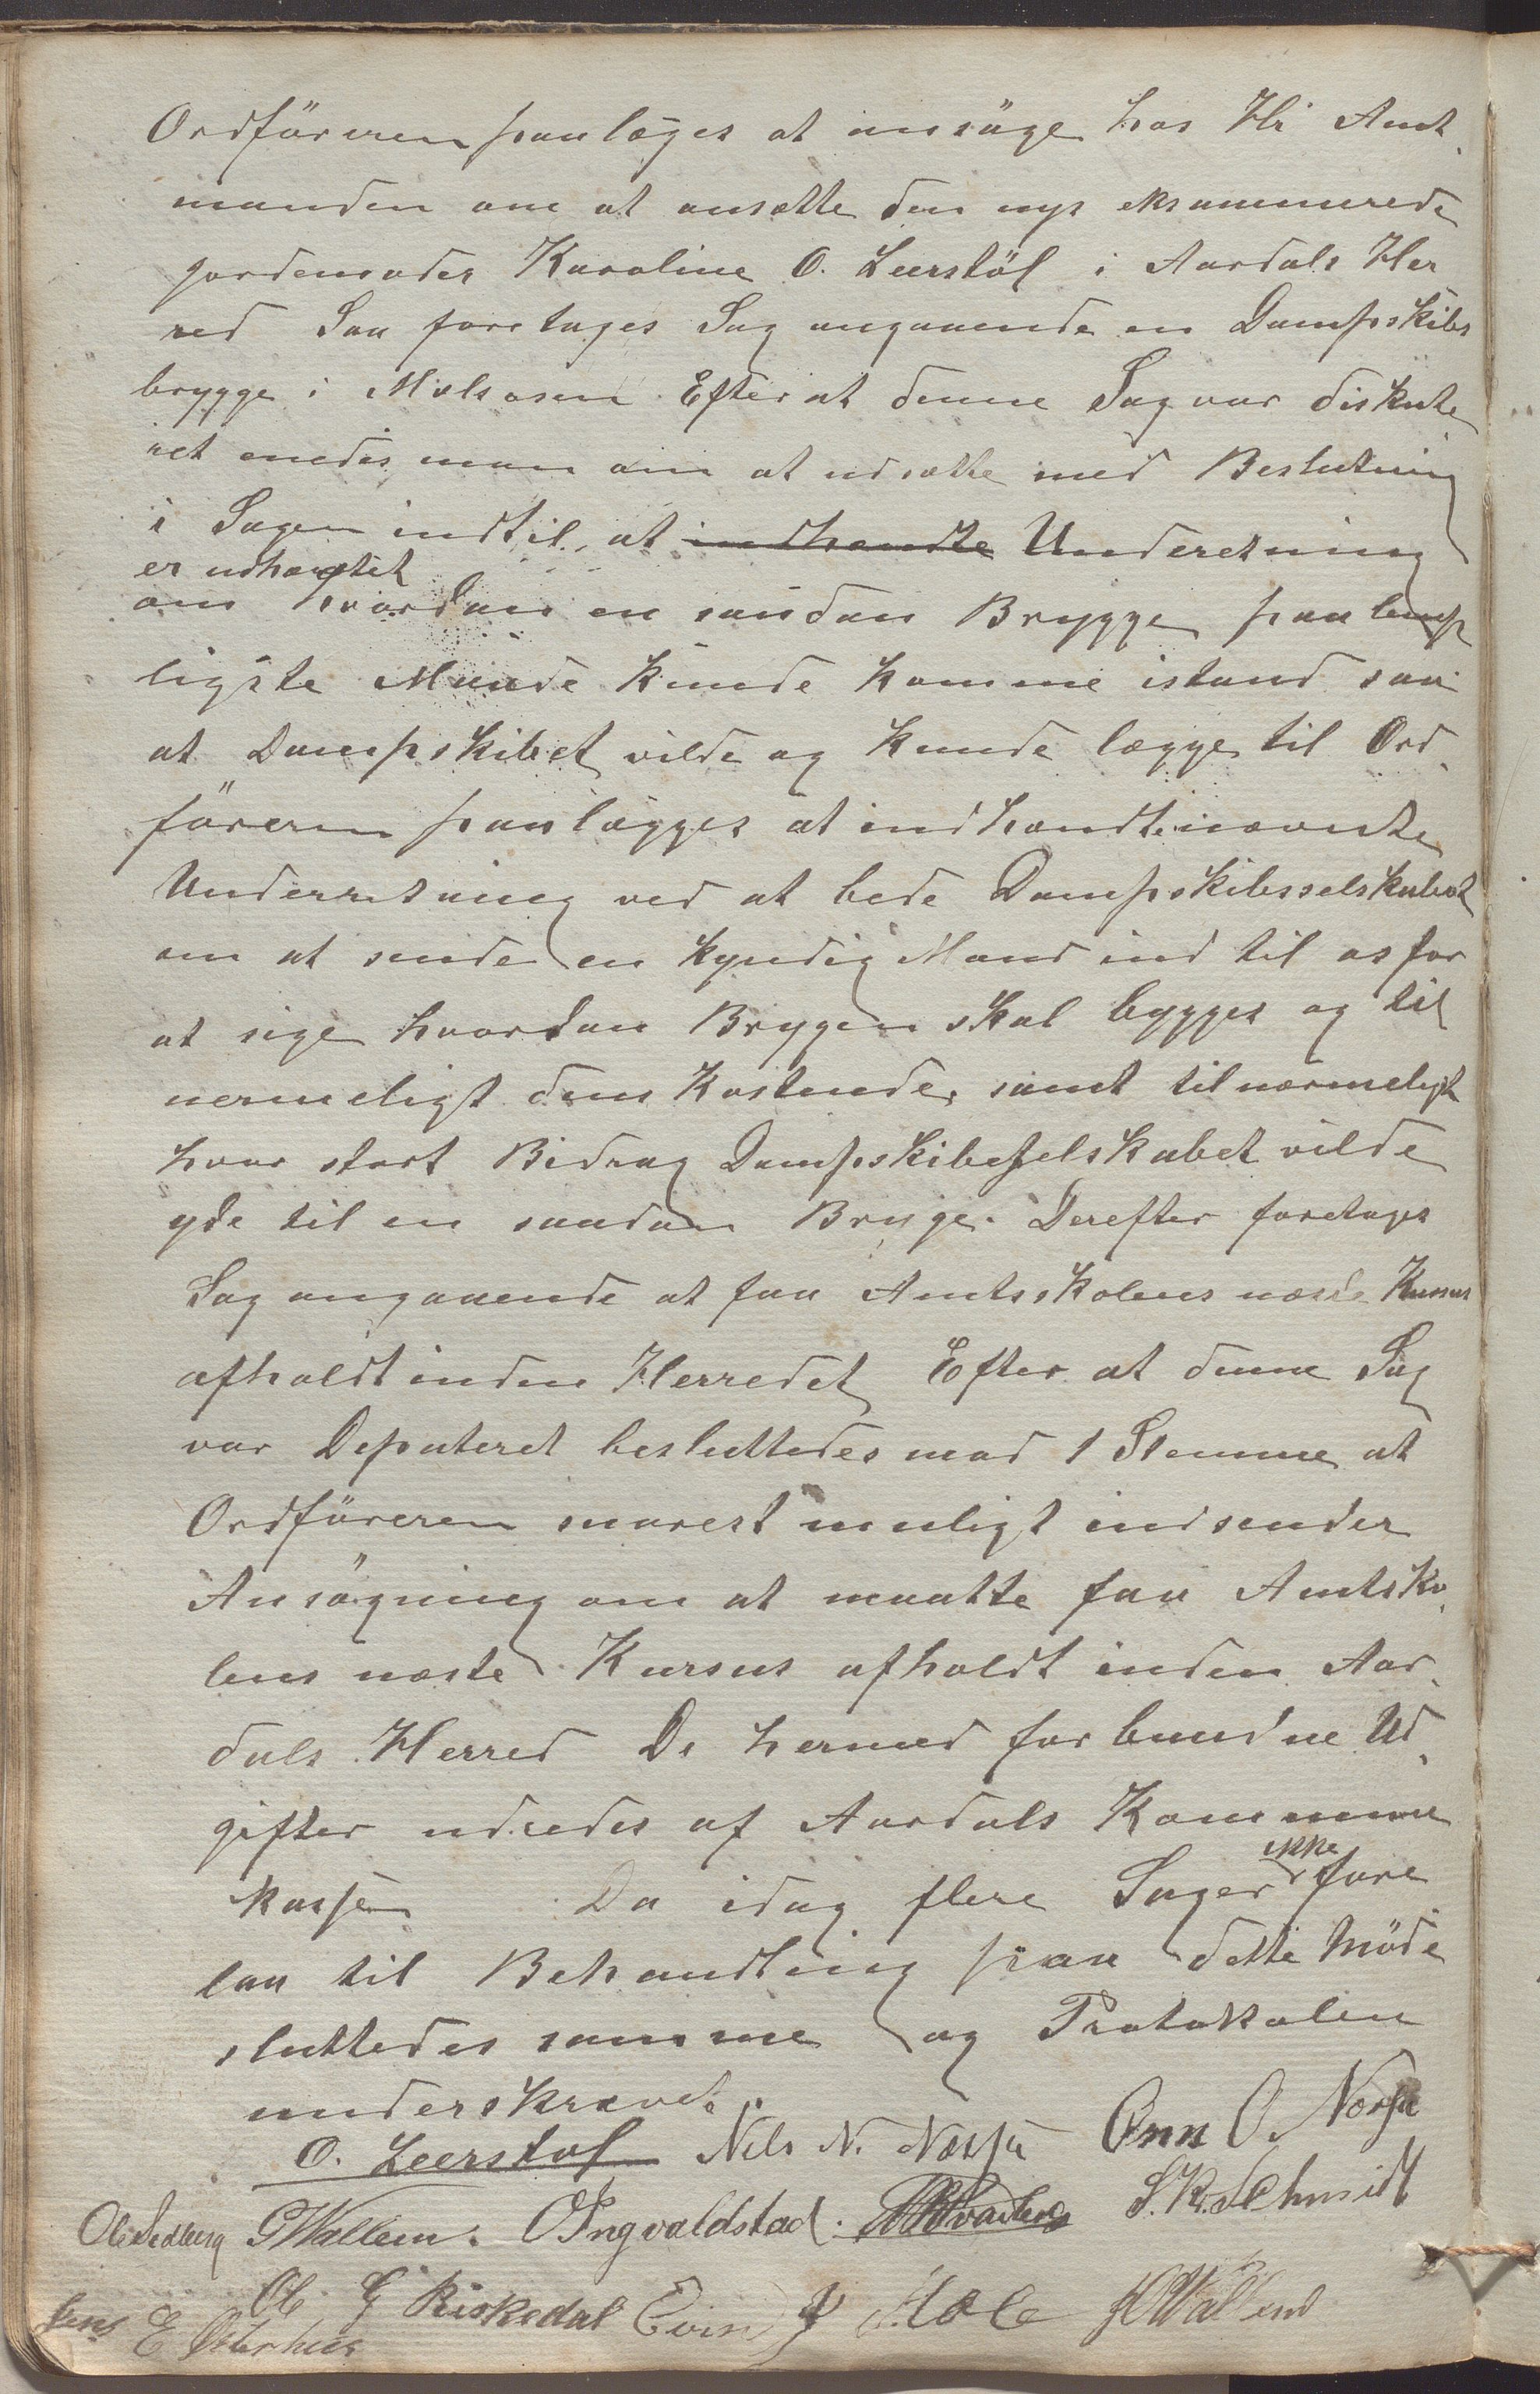 Ordföreren paalæges at ansöge hos Hr Amt
manden om at ansætte den nys eksaminerede
jordemoder Karoline O. Leerstöl i Aardals Her
red Saa foretages Sag angaaende en Dampskibs
brygge i Mælsosen Efter at denne Sag var diskute
ret enedes man om at udsætte med Beslutning
i Sagen indtil, at indhændte Underetning
er udhændtet
om hvordan en saadan Brygge paa lemp
ligste Maade kunde komme istand saa
at Dampskibet vilde og kunde lægge til Ord
föreren paalægges at indhændte nævnte
Underretning ved at bede Dampskibsselskabet
om at sende en kyndig Mand ind til os for
at sige hvordan Brygen skal bygges og til
nermeligt dens Kostende, samt tilnærmeligt
hvor stort Bidrag Dampskibsselskabet vilde
yde til en saadan Brygge. Derefter foretages
Sag angaaende at faa Amtsskolens næste Kursus
afholdt inden Herredet Efter at denne Sag
var Deputeret besluttedes mod 1 Stemme at
Ordföreren snarest muligt indsender
Ansögning om at maatte faa Amtsko
lens næste Kursus afholdt inden Aar
dals Herred De hermed forbundne Ud
gifter udredes af Aardals Kommune
kasse Da idag flere Sager ikke fore
laa til Behandling paa dette Möde
sluttedes samme og Protokolen
underskrevet.
O. Leerstøl Nils N. Nærsø Onn O. Nærsø
Ole Sedberg G Wallem. O Ingvaldstad. S. K. Schmidt
Ole G Riskedal Even J Mæle
Jens E Østerhus